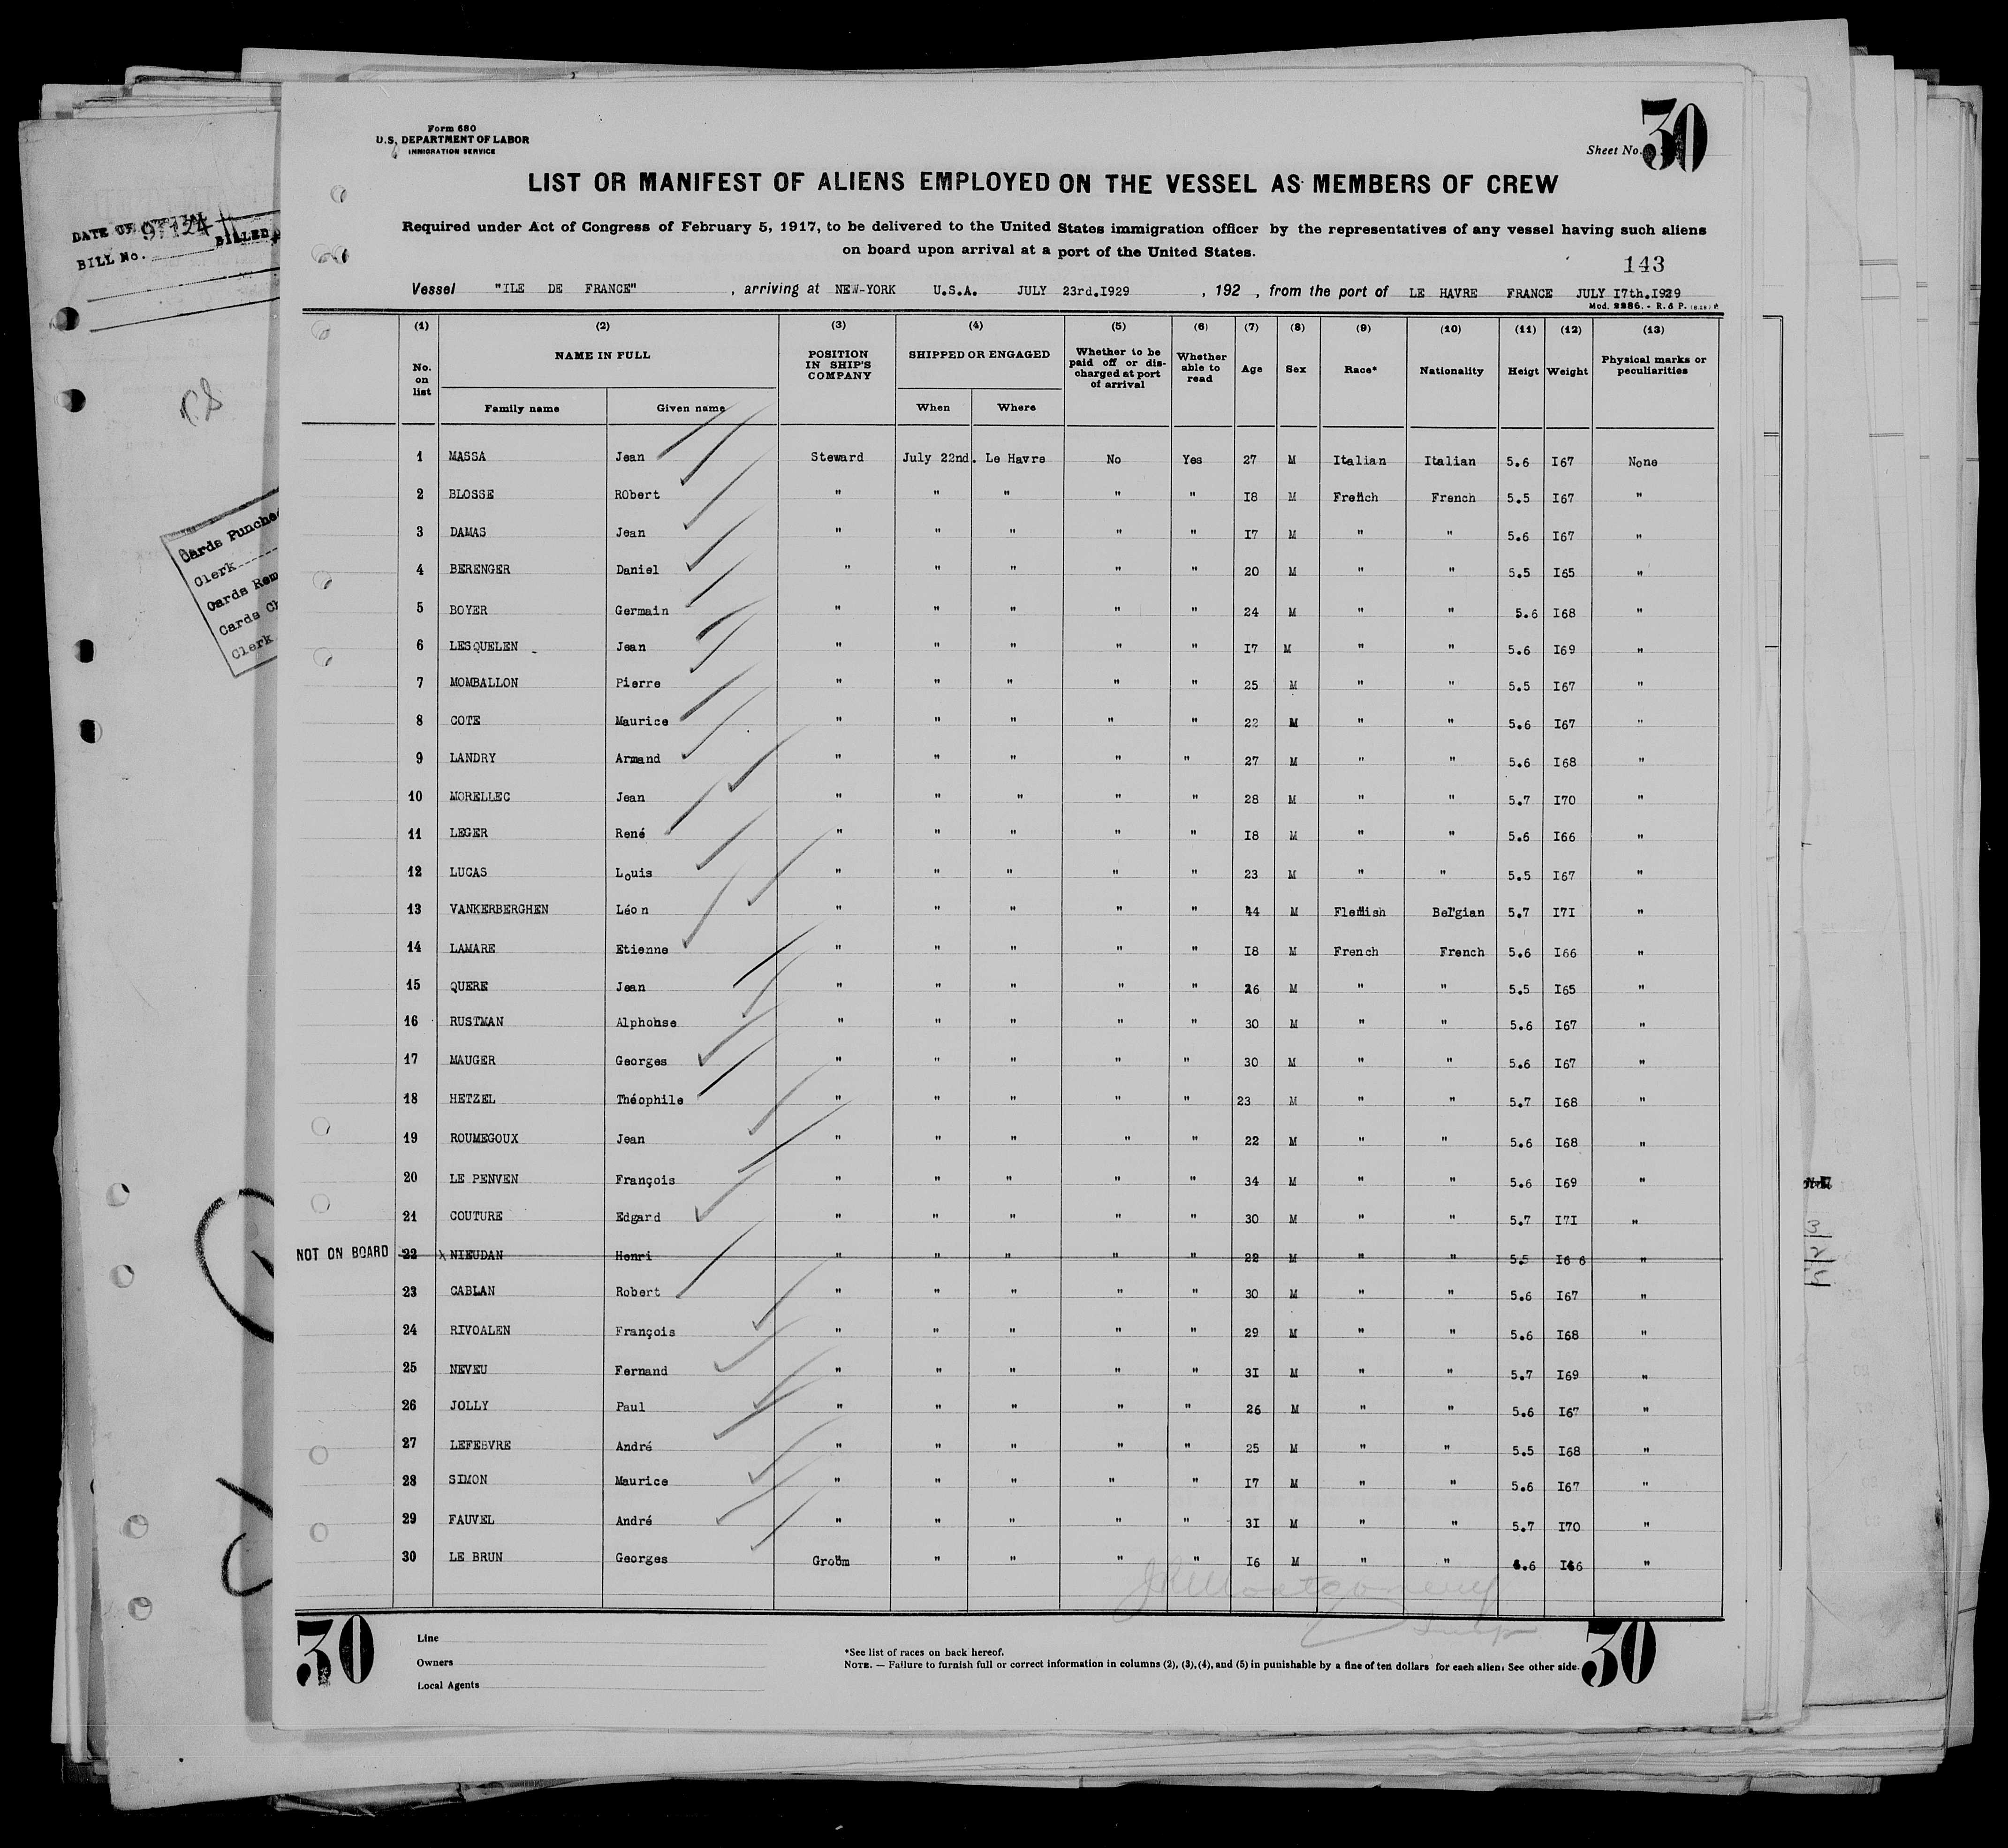 Form 680
U.S. DEPARTMENT OF LABOR
IMMIGRATION SERVICE
Sheet No. 30
LIST OR MANIFEST OF ALIENS EMPLOYED ON THE VESSEL AS MEMBERS OF CREW
Required under Act of Congress of February 5, 1917, to be delivered to the United States immigration officer by the representatives of any vessel having such aliens
on board upon arrival at a port of the United States.
143
Vessel "ILE DE FRANCE" , arriving at NEW-YORK U.S.A. JULY 23rd.I929 , 192 , from the port of LE HAVRE FRANCE JULY I7th.I929
Mod. 2286. - R. & P.
(1) (2) (3) (4) (5) (6) (7) (8) (9) (10) (11) (12) (13)
No. on list NAME IN FULL POSITION IN SHIP'S COMPANY SHIPPED OR ENGAGED Whether to be paid off or discharged at port of arrival Whether able to read Age Sex Race* Nationality Heigt Weight Physical marks or peculiarities
Family name Given name When Where
1 MASSA Jean Steward July 22nd. Le Havre No Yes 27 M Italian Italian 5.6 I67 None
2 BLOSSE RObert " " " " " I8 M French French 5.5 I67 "
3 DAMAS Jean " " " " " I7 M " " 5.6 I67 "
4 BERENGER Daniel " " " " " 20 M " " 5.5 I65 "
5 BOYER Germain " " " " " 24 M " " 5.6 I68 "
6 LESQUELEN Jean " " " " " I7 M " " 5.6 I69 "
7 MOMBALLON Pierre " " " " " 25 M " " 5.5 I67 "
8 COTE Maurice " " " " " 22 M " " 5.6 I67 "
9 LANDRY Armand " " " " " 27 M " " 5.6 I68 "
10 MORELLEC Jean " " " " " 28 M " " 5.7 I70 "
11 LEGER René " " " " " I8 M " " 5.6 I66 "
12 LUCAS Louis " " " " " 23 M " " 5.5 I67 "
13 VANKERBERGHEN Léon " " " " " 44 M Flemish Belgian 5.7 I7I "
14 LAMARE Etienne " " " " " I8 M French French 5.6 I66 "
15 QUERE Jean " " " " " 26 M " " 5.5 I65 "
16 RUSTMAN Alphonse " " " " " 30 M " " 5.6 I67 "
17 MAUGER Georges " " " " " 30 M " " 5.6 I67 "
18 HETZEL Théophile " " " " " 23 M " " 5.7 I68 "
19 ROUMEGOUX Jean " " " " " 22 M " " 5.6 I68 "
20 LE PENVEN François " " " " " 34 M " " 5.6 I69 "
21 COUTURE Edgard " " " " " 30 M " " 5.7 I7I "
NOT ON BOARD 22 x NIEUDAN Henri " " " " " 22 M " " 5.5 I6 6 "
23 CABLAN Robert " " " " " 30 M " " 5.6 I67 "
24 RIVOALEN François " " " " " 29 M " " 5.6 I68 "
25 NEVEU Fernand " " " " " 3I M " " 5.7 I69 "
26 JOLLY Paul " " " " " 26 M " " 5.6 I67 "
27 LEFEBVRE André " " " " " 25 M " " 5.5 I68 "
28 SIMON Maurice " " " " " I7 M " " 5.6 I67 "
29 FAUVEL André " " " " " 3I M " " 5.7 I70 "
30 LE BRUN Georges Groom " " " " I6 M " " 5.6 I66 "
J R Montgomery
Insp
30 30
Line
Owners
Local Agents
*See list of races on back hereof.
NOTE. — Failure to furnish full or correct information in columns (2), (3), (4), and (5) in punishable by a fine of ten dollars for each alien. See other side.
DATE OF
BILLED
BILL No.
Cards Punched
Clerk
Cards Rem
Cards Ch
Clerk